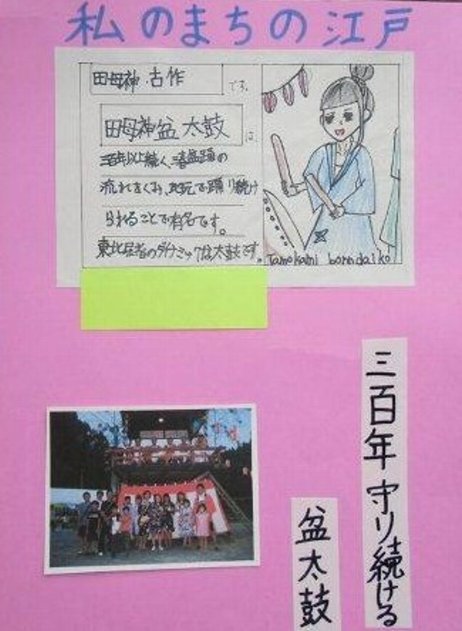 私のまちの江戸
田母神・古作
です。
田母神盆太鼓
は、
三百年以上続く、
盆踊の
流れをくみ、地元で踊り続け
られることで有名です。
東北屈指のダイナミックな太鼓です。
Tamokami bonndaiko
三百年 守り続ける
盆太鼓